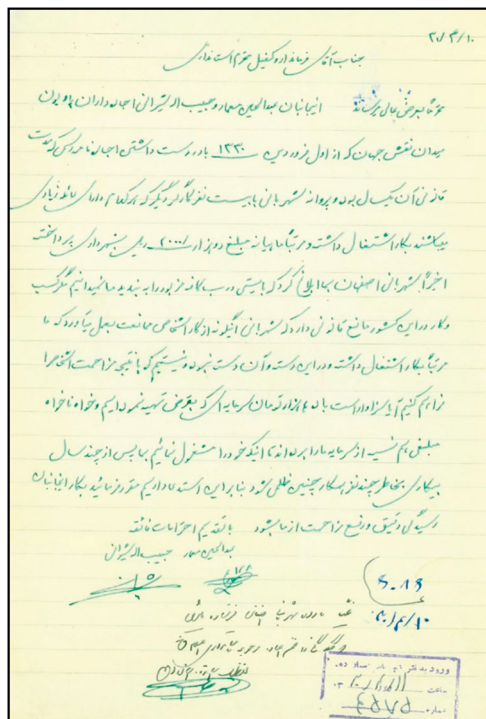 ۳۰/۴/۱۰
جناب آقای فرماندار و کفیل محترم استانداری
محترماً بعرض عالی میرساند اینجانبان عبدالحسین معمار و حبیب اله شیرانی اجاره داران پاویون
میدان نقش جهان که از اول فروردین ۱۳۳۰ با در دست داشتن اجاره نامه رسمی که مدت
قانونی آن یکسال بود و پروانه شهربانی با بیست نفر کارگر دیگر که هر کدام دارای عائله زیادی
میباشند بکار اشتغال داشته و مرتباً ماهیانه مبلغ دو هزار ۲۰۰۰ ریال بشهرداری پرداخته
اخیراً شهربانی اصفهان بما ابلاغ کرد که بایستی درب کافه مزبور را به بندید ما نمیدانیم مگر کسب
و کار در این کشور مانع قانونی دارد که شهربانی اینگونه از کار اشخاص ممانعت بعمل میآورد که ما
مرتباً بکار اشتغال داشته و در این دسته و آن دسته نبوده و نیستیم که بالنتیجه مزاحمت اشخاص را
فراهم کنیم آیا سزاوار است با ده هزار تومان سرمایه ای که بقرض تهیه نموده ایم و خواه ناخواه
مبلغی هم نسیه از سرمایه ما را برده اند تا اینکه خود را مشغول نمائیم بما پس از چند سال
بیکاری بخاطر چند نفر بیکار چنین ظلمی شود بنابراین استدعا داریم مقرر فرمائید بکار اینجانبان
رسیدگی دقیق و رفع مزاحمت از ما بشود با تقدیم احترامات فائقه
عبدالحسین معمار حبیب اله شیرانی
۳۰/۴/۱۰
ورود به دفتر
ساعت
شماره